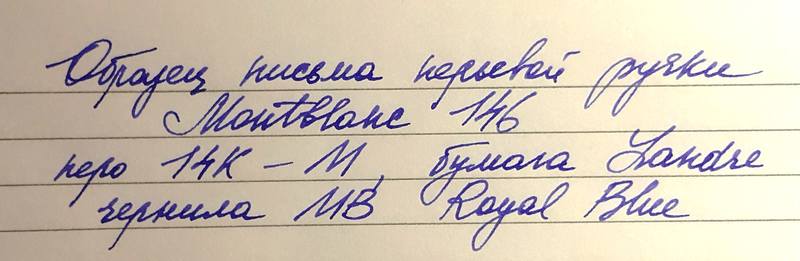 Образец письма перьевой ручки
Montblanc 146
перо 14К – М, бумага Landre
чернила MB Royal Blue